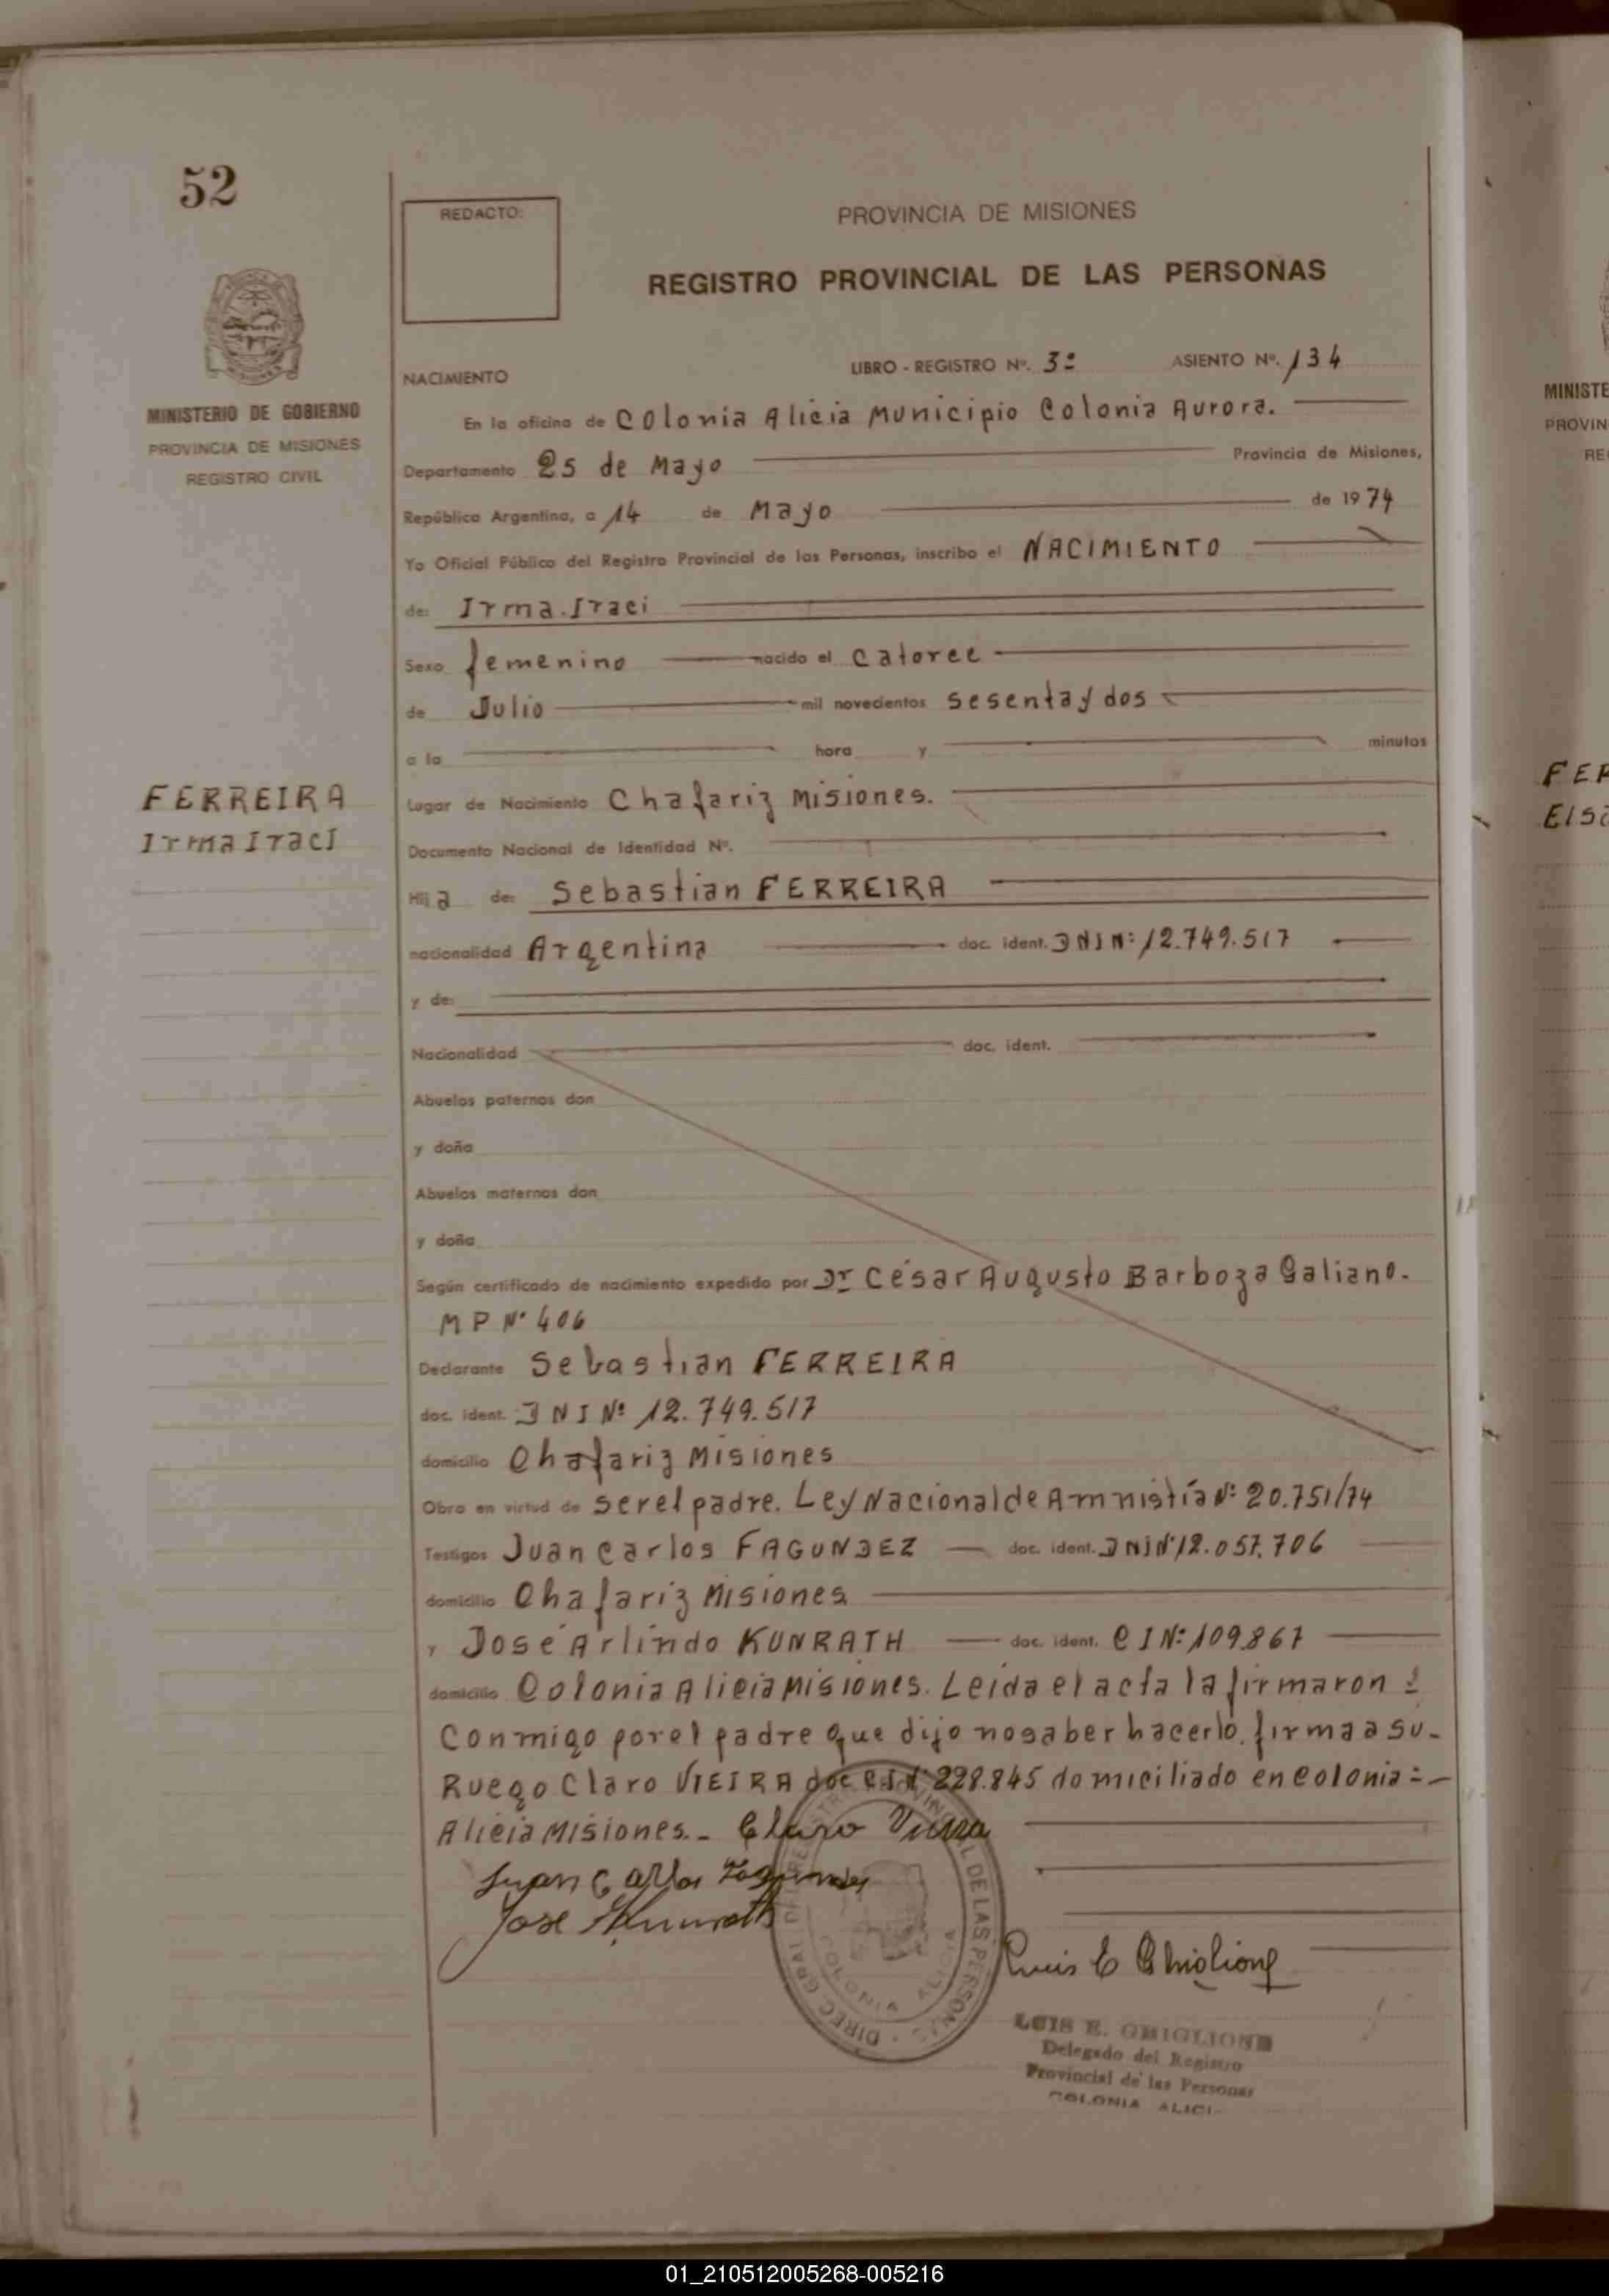 52
REDACTO:
PROVINCIA DE MISIONES
REGISTRO PROVINCIAL DE LAS PERSONAS
MINISTERIO DE GOBIERNO
PROVINCIA DE MISIONES
REGISTRO CIVIL
NACIMIENTO LIBRO - REGISTRO Nº. 3º ASIENTO Nº. 134
En la oficina de Colonia Alicia Municipio Colonia Aurora.
Departamento 25 de Mayo Provincia de Misiones,
República Argentina, a 14 de Mayo de 1974
Yo Oficial Público del Registro Provincial de las Personas, inscribo el NACIMIENTO
de: Irma Iraci
Sexo femenino nacido el catorce
de Julio mil novecientos sesenta y dos
a la hora y minutos
FERREIRA
Irma Iraci
Lugar de Nacimiento Chafariz Misiones.
Documento Nacional de Identidad Nº.
Hija de: Sebastian FERREIRA
nacionalidad Argentina doc. ident. DNI Nº 12.749.517
y de:
Nacionalidad doc. ident.
Abuelos paternos don
y doña
Abuelos maternos don
y doña
Según certificado de nacimiento expedido por Dr César Augusto Barboza Galiano.
MP Nº 406
Declarante Sebastian FERREIRA
doc. ident. DNI Nº 12.749.517
domicilio Chafariz Misiones
Obra en virtud de ser el padre. Ley Nacional de Amnistía Nº 20.751/74
Testigos Juan Carlos FAGUNDEZ doc. ident. DNI Nº 12.057.706
domicilio Chafariz Misiones
y José Arlindo KUNRATH doc. ident. CI Nº 109.867
domicilio Colonia Alicia Misiones. Leida el acta la firmaron
conmigo por el padre que dijo no saber hacerlo, firma a su-
Ruego Claro VIEIRA doc CI Nº 228.845 domiciliado en Colonia =-
Alicia Misiones.- Claro Vieira
Juan Carlos Fagundez
Jose Kunrath
DIREC GRAL DEL REGISTRO PROVINCIAL DE LAS PERSONAS
COLONIA ALICIA
Luis E Ghiglione
LUIS E. GHIGLIONE
Delegado del Registro
Provincial de las Personas
COLONIA ALICI
MINISTE
PROVIN
RE
FER
Elsa
01_210512005268-005216